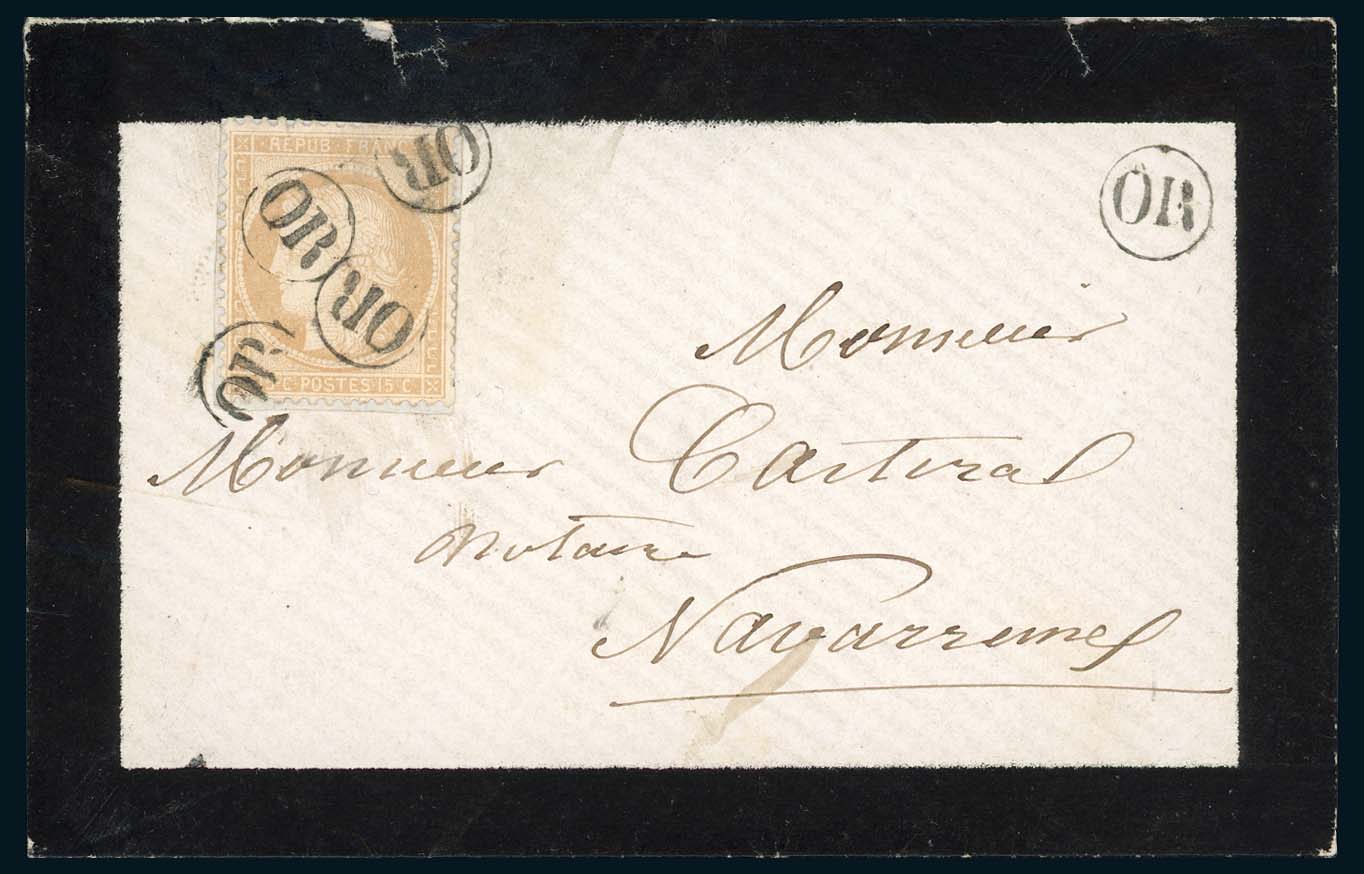 OR
REPUB · FRANC
OR
OR
OR
OR
C POSTES 15 C
Monsieur
Monsieur Casteral
notaire
Navarrenx